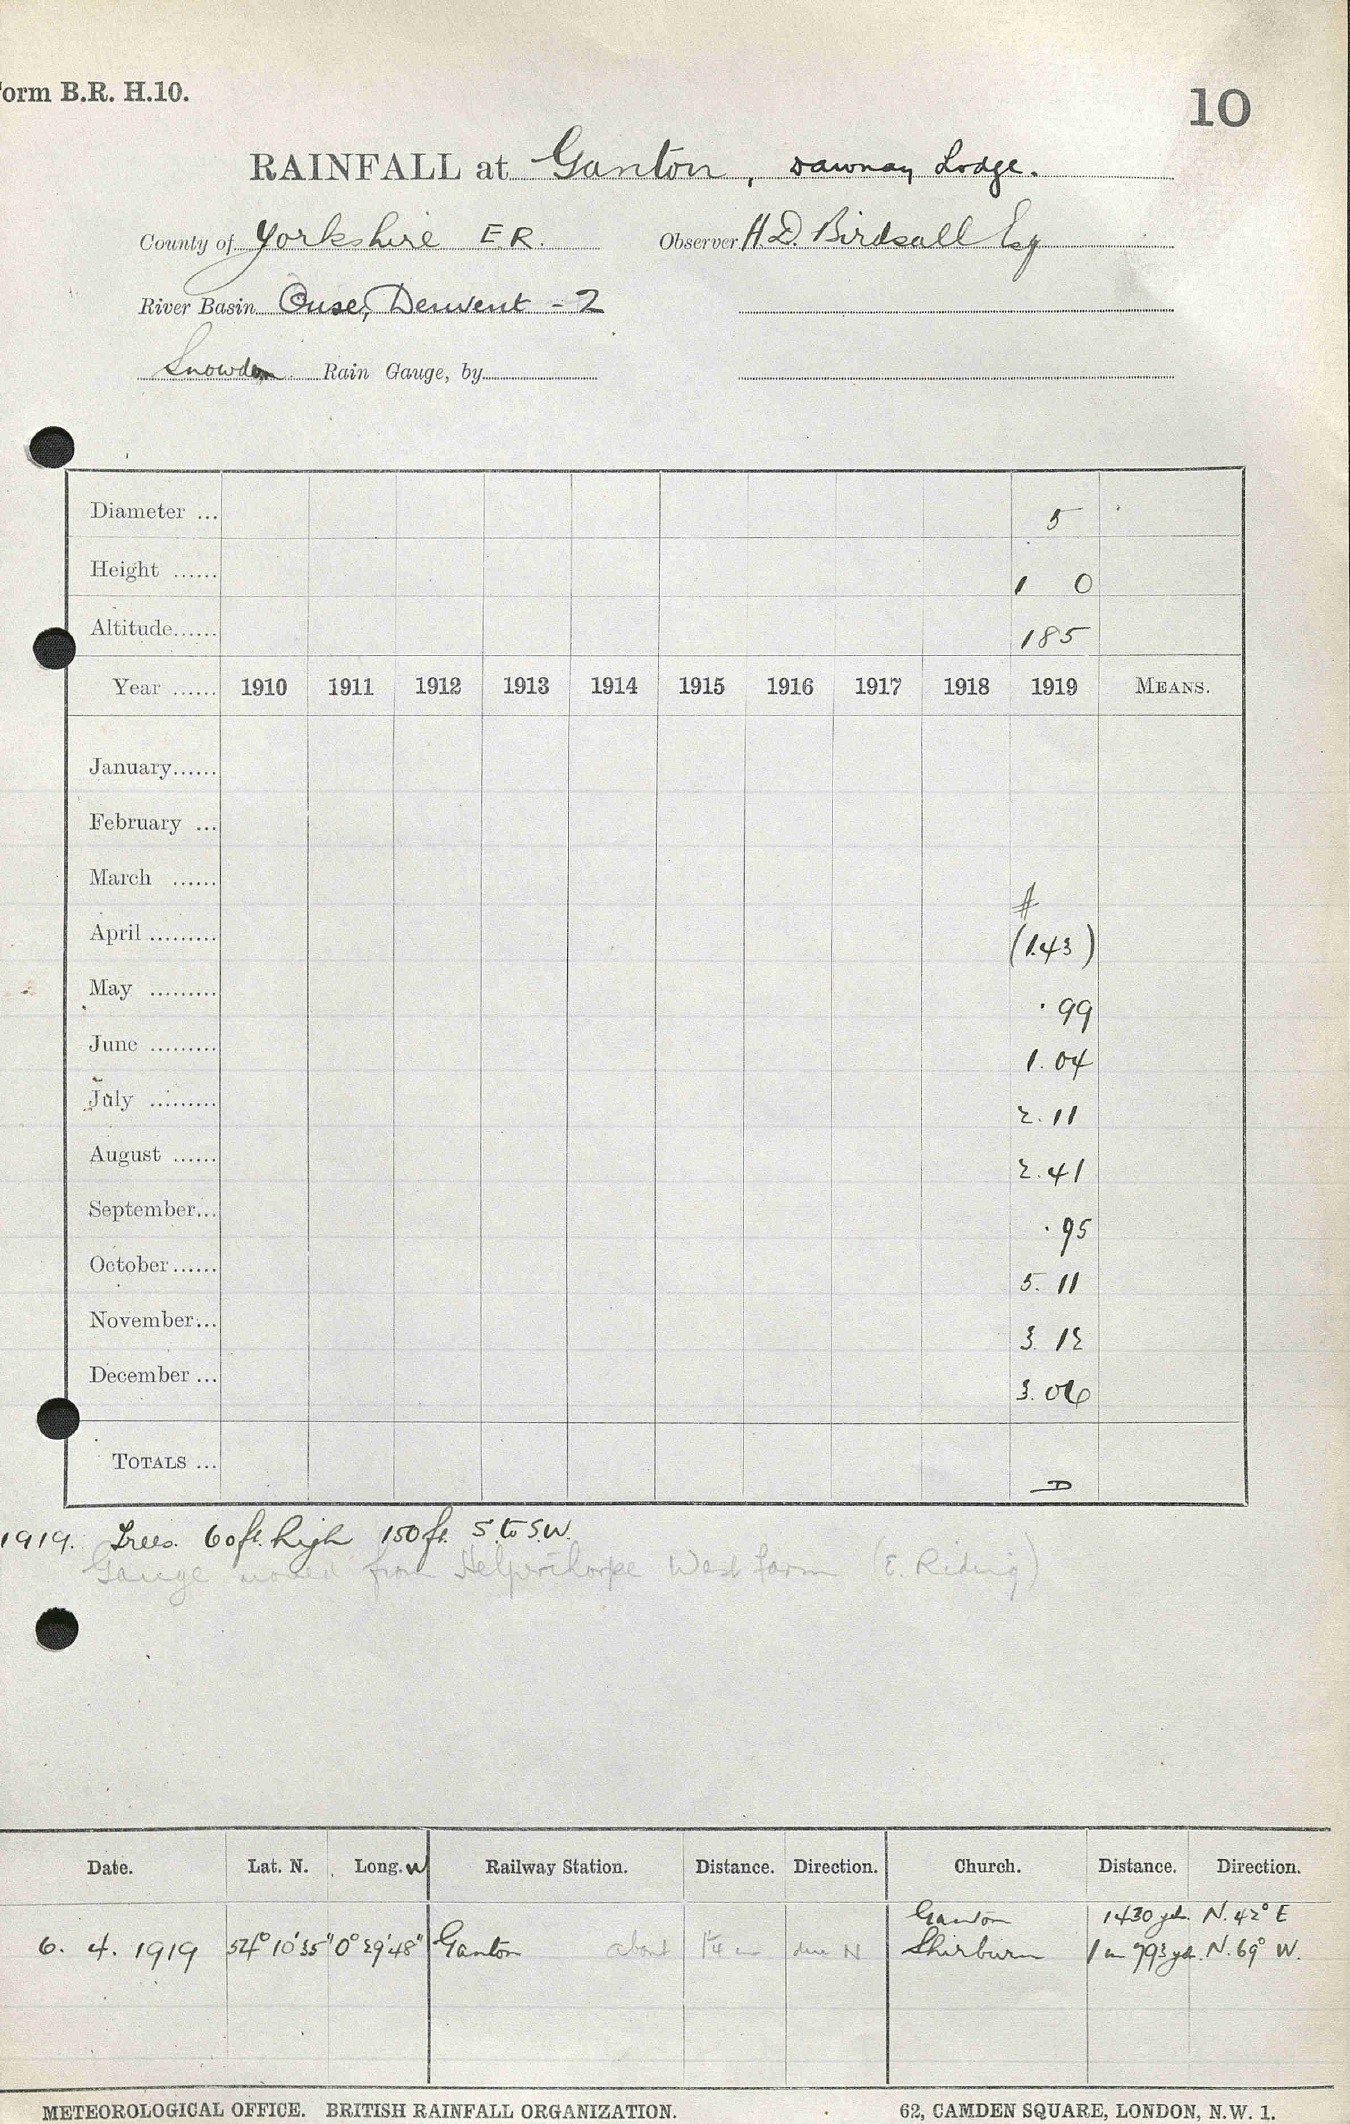 orm B.R. H.10.
10
RAINFALL at Ganton, Dawnay Lodge.
County of Yorkshire E.R. Observer H.D. Birdsall Esq
River Basin Ouse, Derwent - 2
Snowdon Rain Gauge, by
Diameter ... 5
Height ...... 1 0
Altitude...... 185
Year ...... 1910 1911 1912 1913 1914 1915 1916 1917 1918 1919 MEANS.
January......
February ...
March ......
#
April ......... (1.43)
May ......... .99
June ......... 1.04
July ......... 2.11
August ...... 2.41
September... .95
October...... 5.11
November... 3.12
December ... 3.06
TOTALS ... D
1919. Trees. 60ft. high 150ft. S. to S.W.
Gauge moved from Helperthorpe West farm (E. Riding)
Date. Lat. N. Long. W Railway Station. Distance. Direction. Church. Distance. Direction.
Ganton 1430 yds. N. 42° E
6. 4. 1919 54° 10' 35" 0° 29' 48" Ganton about 1¼ m due N Shirburn 1 m 793 yds. N. 69° W.
METEOROLOGICAL OFFICE. BRITISH RAINFALL ORGANIZATION. 62, CAMDEN SQUARE, LONDON, N.W. 1.